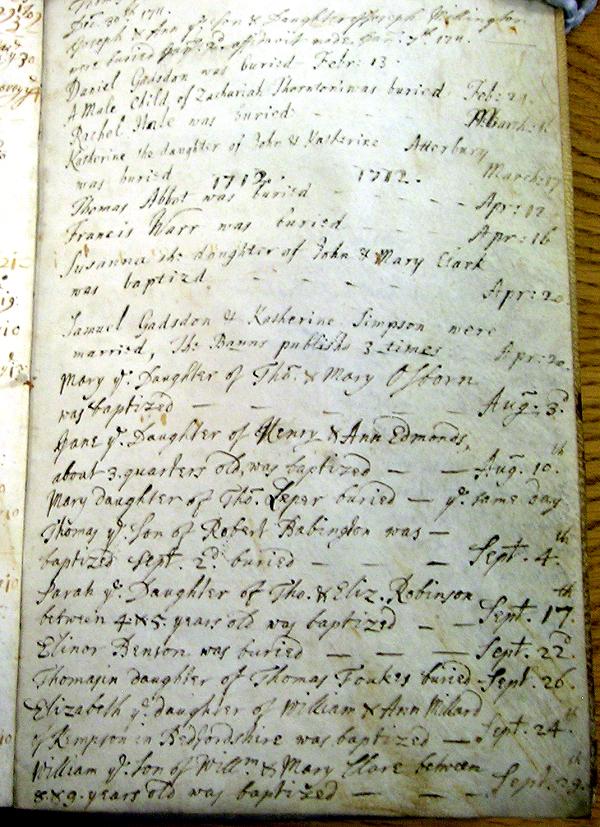 Dec. 30th 1711.
Joseph & Ann & Daughter of Joseph
were buried affidavit made Jan: 7th 1711.
Daniel Gadsdon was buried Febr: 13.
A Male Child of Zachariah Thornton was buried Feb: 24
Rachel was buried March:
Katherine the daughter of John & Katherine Atterbury
was buried March: 17
1712. 1712.
Thomas Abbot was buried Apr: 12
Francis Warr was buried Apr: 16
Susanna the daughter of John & Mary Clark
was baptized Apr: 20
Samuel Gadsdon & Katherine Simpson were
married, The Banns publish'd 3 times Apr: 20.
Mary ye. Daughter of Tho. & Mary Osborn
was baptized — — — — Aug: 3.
Jane ye. Daughter of Henry & Ann Edmonds,
about 3 quarters old, was baptized — — Aug. 10.th
Mary daughter of Tho. Leper buried — ye. same day
Thomas ye. Son of Robert Babington was —
baptized Sept. 2d. buried — — — Sept. 4.th
Sarah ye. Daughter of Tho. & Eliz. Robinson
between 4 & 5 years old was baptized — — Sept. 17.th
Elinor Benson was buried — — — Sept. 22d
Thomasin daughter of Thomas Foukes buried Sept. 26.
Elizabeth ye. daughter of William & Ann Willard
of Kempson in Bedfordshire was baptized — Sept. 24.th
William ye. Son of Willm. & Mary Clare between
8 & 9 years old was baptized — — — Sept. 29.th